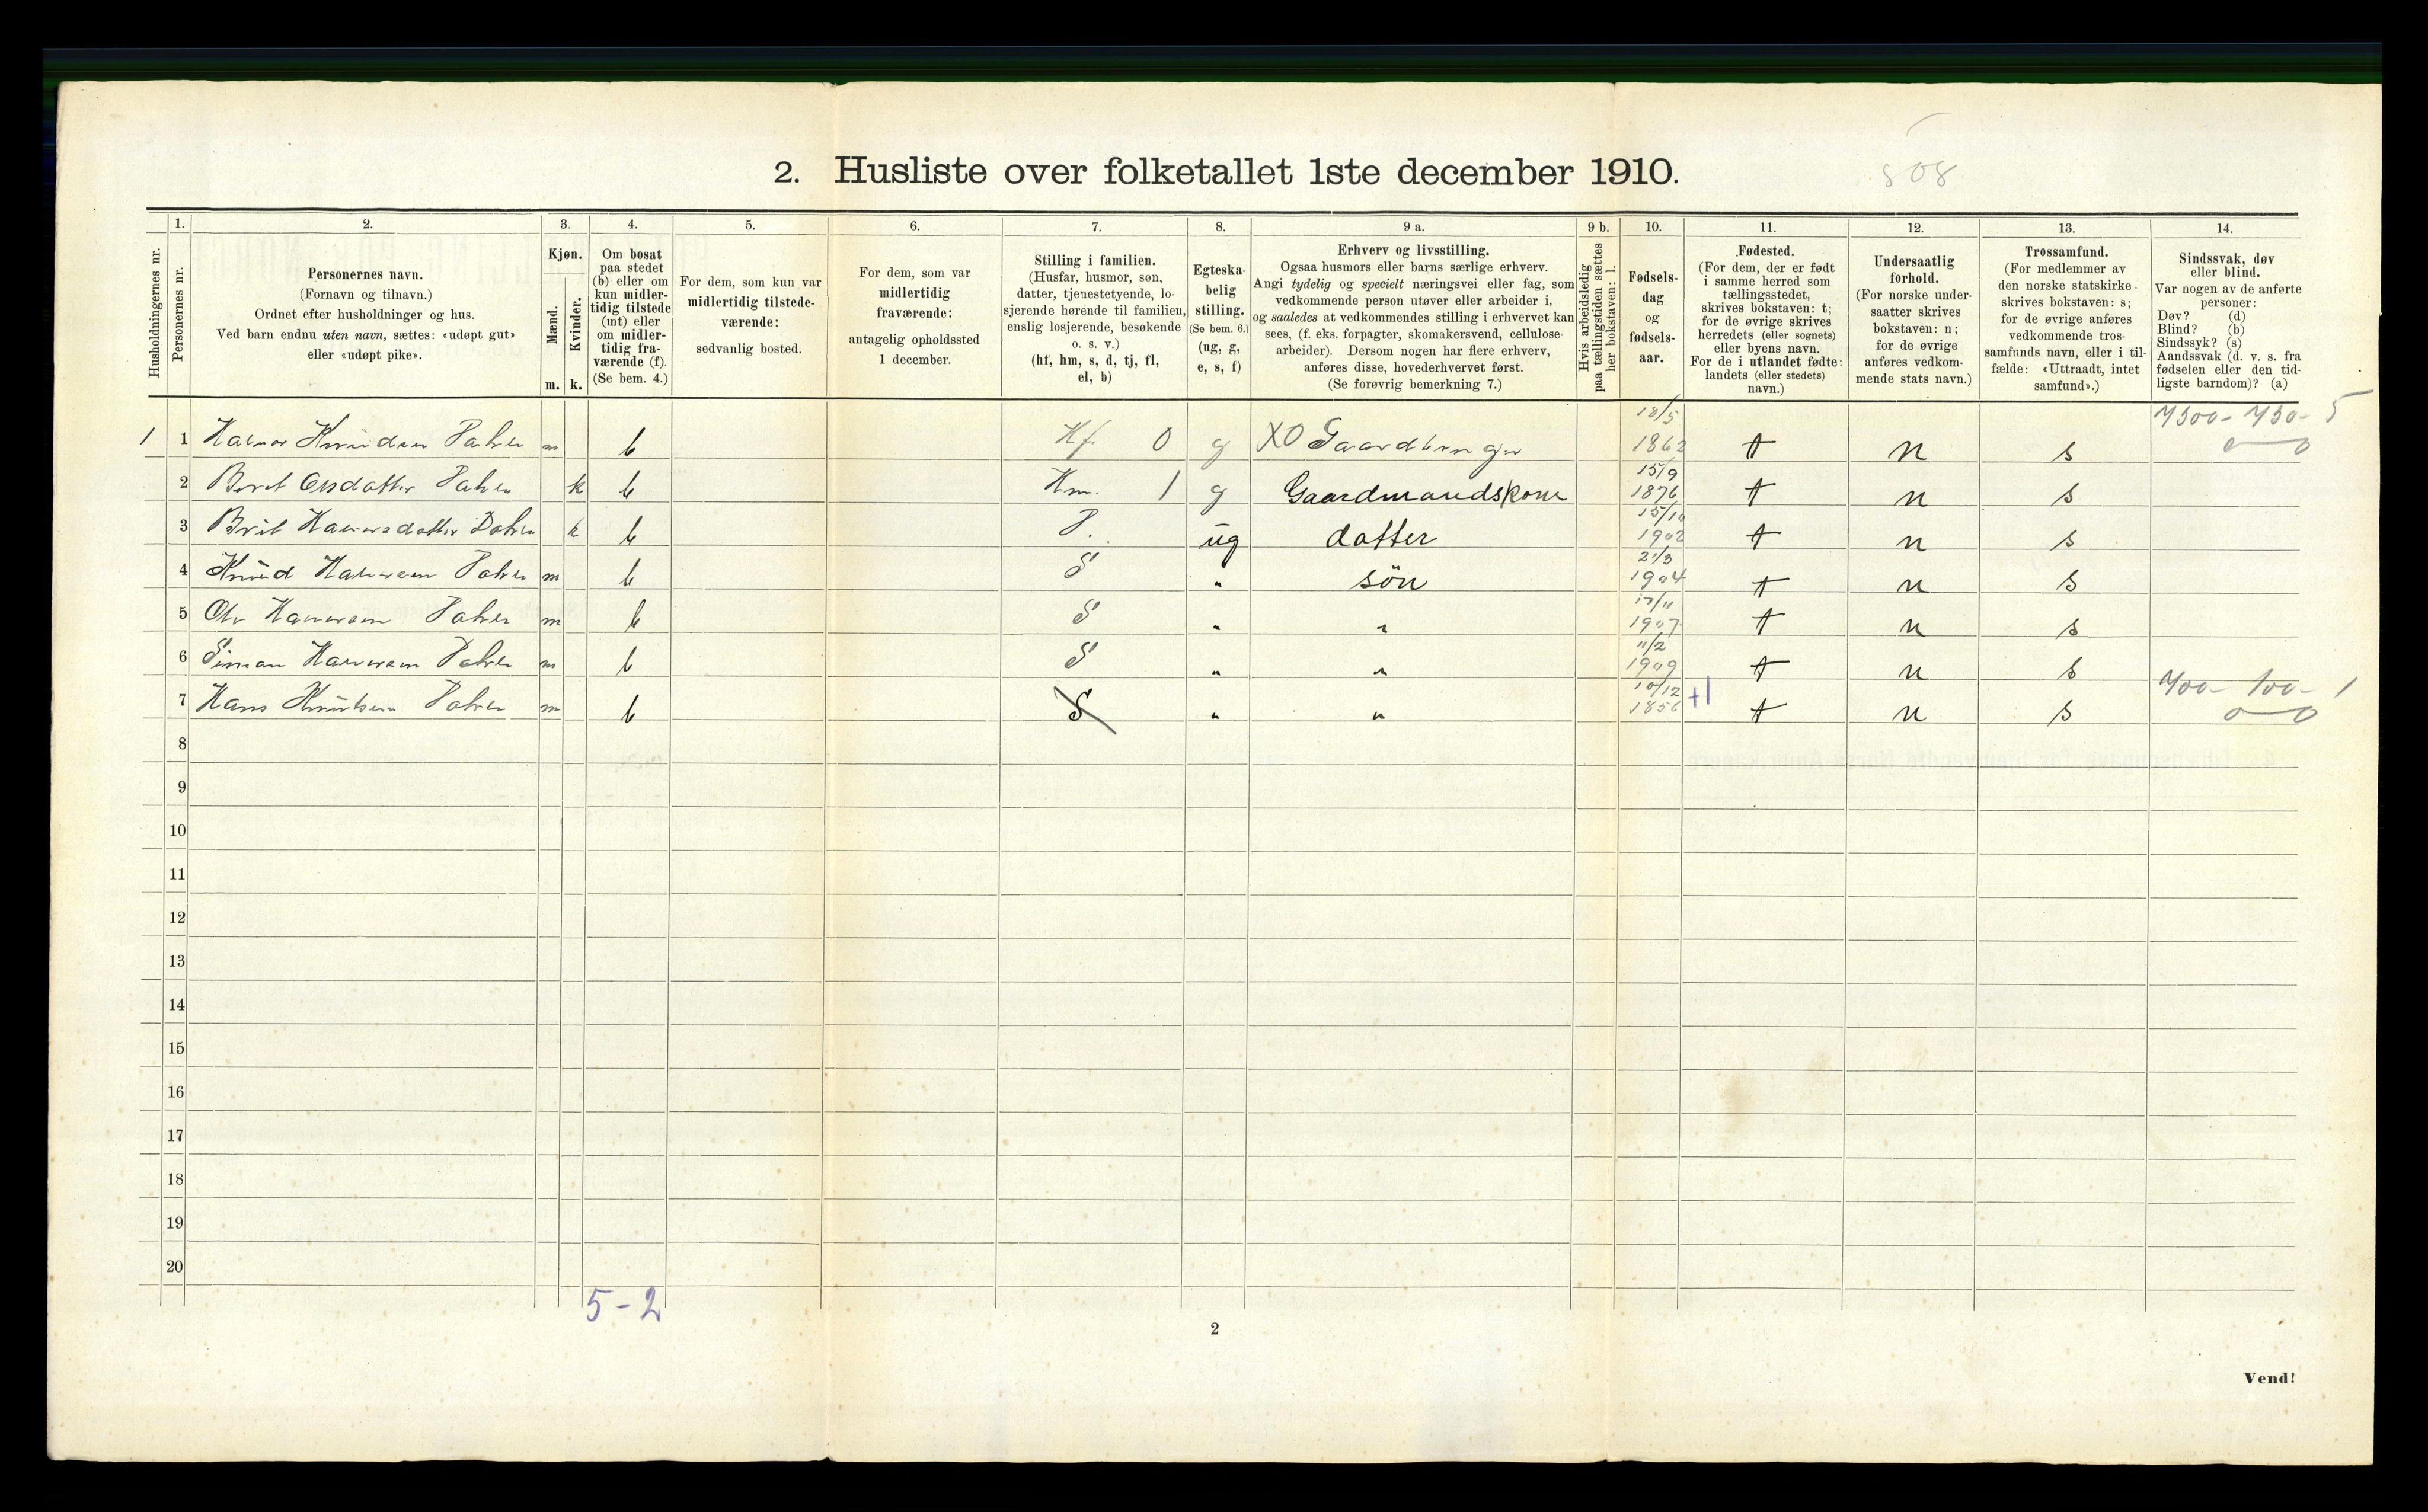 508
2. Husliste over folketallet 1ste december 1910.
Husholdningernes nr.
1.
Personernes nr.
2.
Personernes navn.
(Fornavn og tilnavn.)
Ordnet efter husholdninger og hus.
Ved barn endnu uten navn, sættes: «udøpt gut»
eller «udøpt pike».
3.
Kjøn.
Mænd.
Kvinder.
m. k.
4.
Om bosat
paa stedet
(b) eller om
kun midler-
tidig tilstede
(mt) eller
om midler-
tidig fra-
værende (f).
(Se bem. 4.)
5.
For dem, som kun var
midlertidig tilstede-
værende:
sedvanlig bosted.
6.
For dem, som var
midlertidig
fraværende:
antagelig opholdssted
1 december.
7.
Stilling i familien.
(Husfar, husmor, søn,
datter, tjenestetyende, lo-
sjerende hørende til familien,
enslig losjerende, besøkende
o. s. v.)
(hf, hm, s, d, tj, fl,
el, b)
8.
Egteska-
belig
stilling.
(Se bem. 6.)
(ug, g,
e, s, f)
9 a.
Erhverv og livsstilling.
Ogsaa husmors eller barns særlige erhverv.
Angi tydelig og specielt næringsvei eller fag, som
vedkommende person utøver eller arbeider i,
og saaledes at vedkommendes stilling i erhvervet kan
sees, (f. eks. forpagter, skomakersvend, cellulose-
arbeider). Dersom nogen har flere erhverv,
anføres disse, hovederhvervet først.
(Se forøvrig bemerkning 7.)
9 b.
Hvis arbeidsledig
paa tællingstiden sættes
her bokstaven: l.
10.
Fødsels-
dag
og
fødsels-
aar.
11.
Fødested.
(For dem, der er født
i samme herred som
tællingsstedet,
skrives bokstaven: t;
for de øvrige skrives
herredets (eller sognets)
eller byens navn.
For de i utlandet fødte:
landets (eller stedets)
navn.)
12.
Undersaatlig
forhold.
(For norske under-
saatter skrives
bokstaven: n;
for de øvrige
anføres vedkom-
mende stats navn.)
13.
Trossamfund.
(For medlemmer av
den norske statskirke
skrives bokstaven: s;
for de øvrige anføres
vedkommende tros-
samfunds navn, eller i til-
fælde: «Uttraadt, intet
samfund».)
14.
Sindssvak, døv
eller blind.
Var nogen av de anførte
personer:
Døv? (d)
Blind? (b)
Sindssyk? (s)
Aandssvak (d. v. s. fra
fødselen eller den tid-
ligste barndom)? (a)
1 1 Knudsen m b Hf 0 g XO Gaardbruger 18/5 1862 t n s
2 Olsdatter k b Hm. 1 g Gaardmandskone 15/9 1876 t n s
3 k b ug datter 15/10 1902 t n s
4 Knud m b S " søn 21/3 1904 t n s
5 m b S " " 17/11 1907 t n s
6 Simon m b S " " 11/2 1909 t n s
7 Hans m b S " " 10/12 1856 +1 t n s
8
9
10
11
12
13
14
15
16
17
18
19
20
5-2
2
Vend!